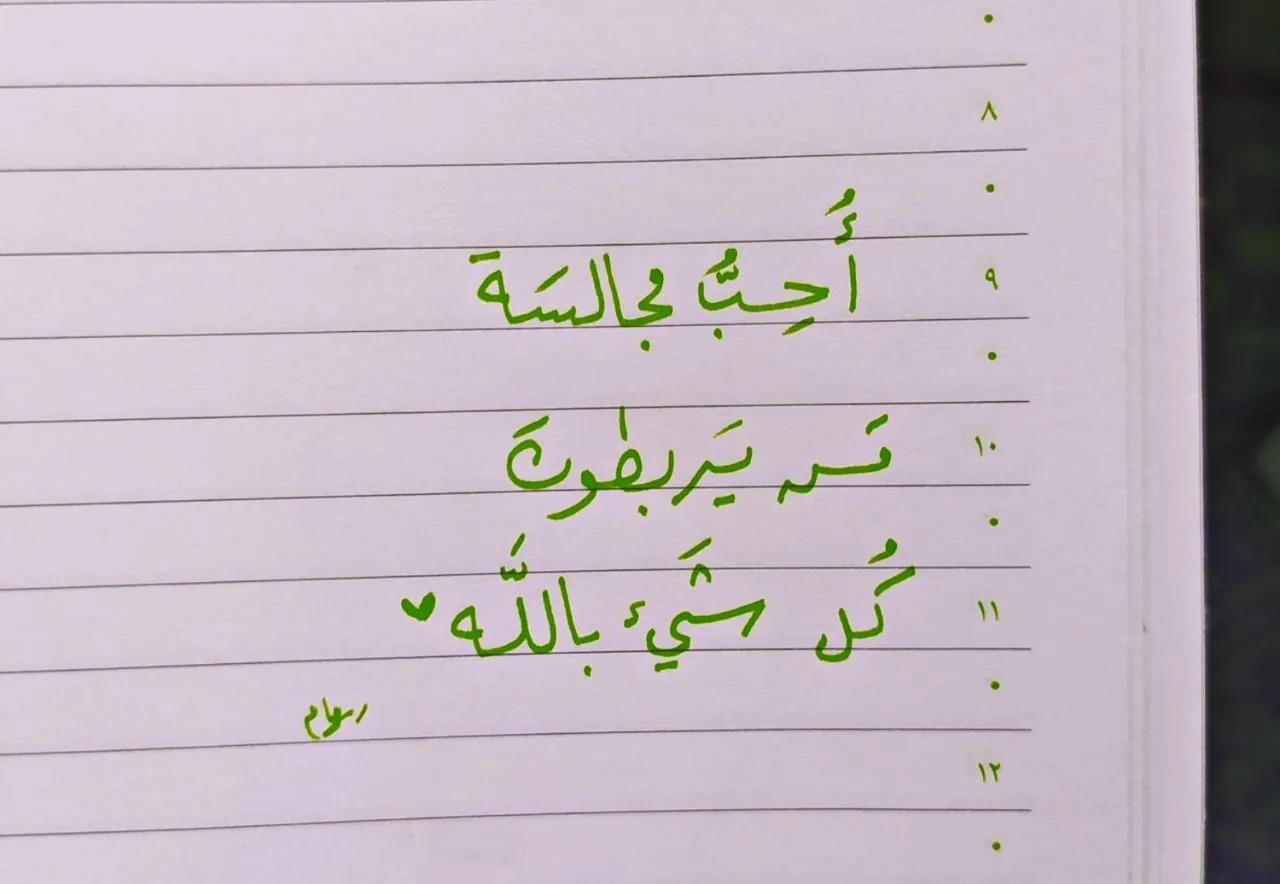 ٨
أُحِبُّ مجالسَة
٩
مَن يَربطونَ
١٠
كُل شَيء باللَّه ♥
١١
رهام
١٢